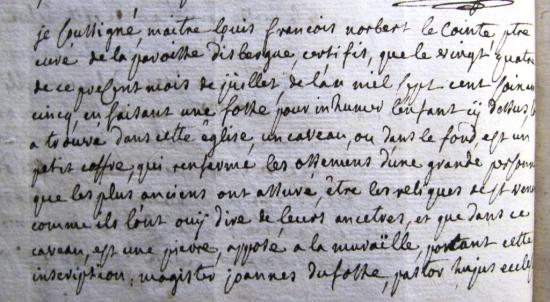 je soussigné, maitre louis francois norbert le Cointe ptre
curé de la paroisse disbergue, certifis, que le vingt quatre
de ce present mois de juillet de lan miel sept cent soixan
cinq, en faisant une fosse pour inhumer lenfant cy dessus,
a trouvé dans cette église, un caveau, ou dans le fond, est un
petit coffre, qui renfermé les ossemens dune grande personn
que les plus anciens ont assuré, être les reliques de st venan
comme ils lont ouÿ dire de leurs ancetres, et que dans ce
caveau, est une pierre, apposé a la muraille, portant cette
inscription, magister joannes dufosse, pastor hujus eccles